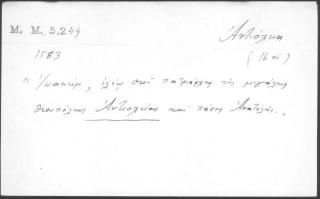 M. M. 5,244
Ἀντιόχεια
1583
(16 αἰ.)
"Ἰωακείμ, ἐλέῳ θεοῦ πατριάρχης τῆς μεγάλης
θεουπόλεως Ἀντιοχείας καὶ πάσης Ἀνατολῆς."